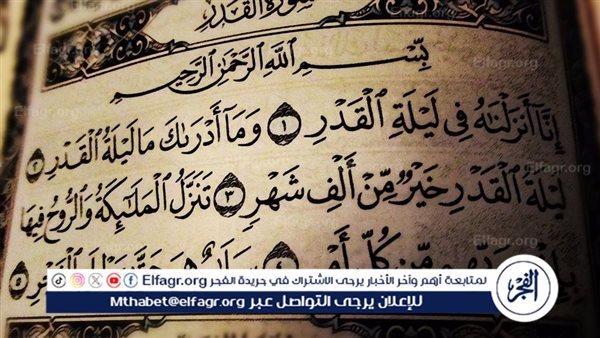 سُورَةُ الْقَدْرِ
بِسْمِ اللَّهِ الرَّحْمَٰنِ الرَّحِيمِ
إِنَّا أَنزَلْنَٰهُ فِي لَيْلَةِ الْقَدْرِ ١ وَمَا أَدْرَىٰكَ مَا لَيْلَةُ الْقَدْرِ ٢
لَيْلَةُ الْقَدْرِ خَيْرٌ مِّنْ أَلْفِ شَهْرٍ ٣ تَنَزَّلُ الْمَلَٰٓئِكَةُ وَالرُّوحُ فِيهَا
مِّن كُلِّ
٥
لمتابعة أهم وآخر الأخبار يرجى الاشتراك في جريدة الفجر Elfagr.org
للإعلان يرجى التواصل عبر Mthabet@elfagr.org
الفجر
Elfagr.org
Elfagr.org
Elfagr.org
Elfagr.org